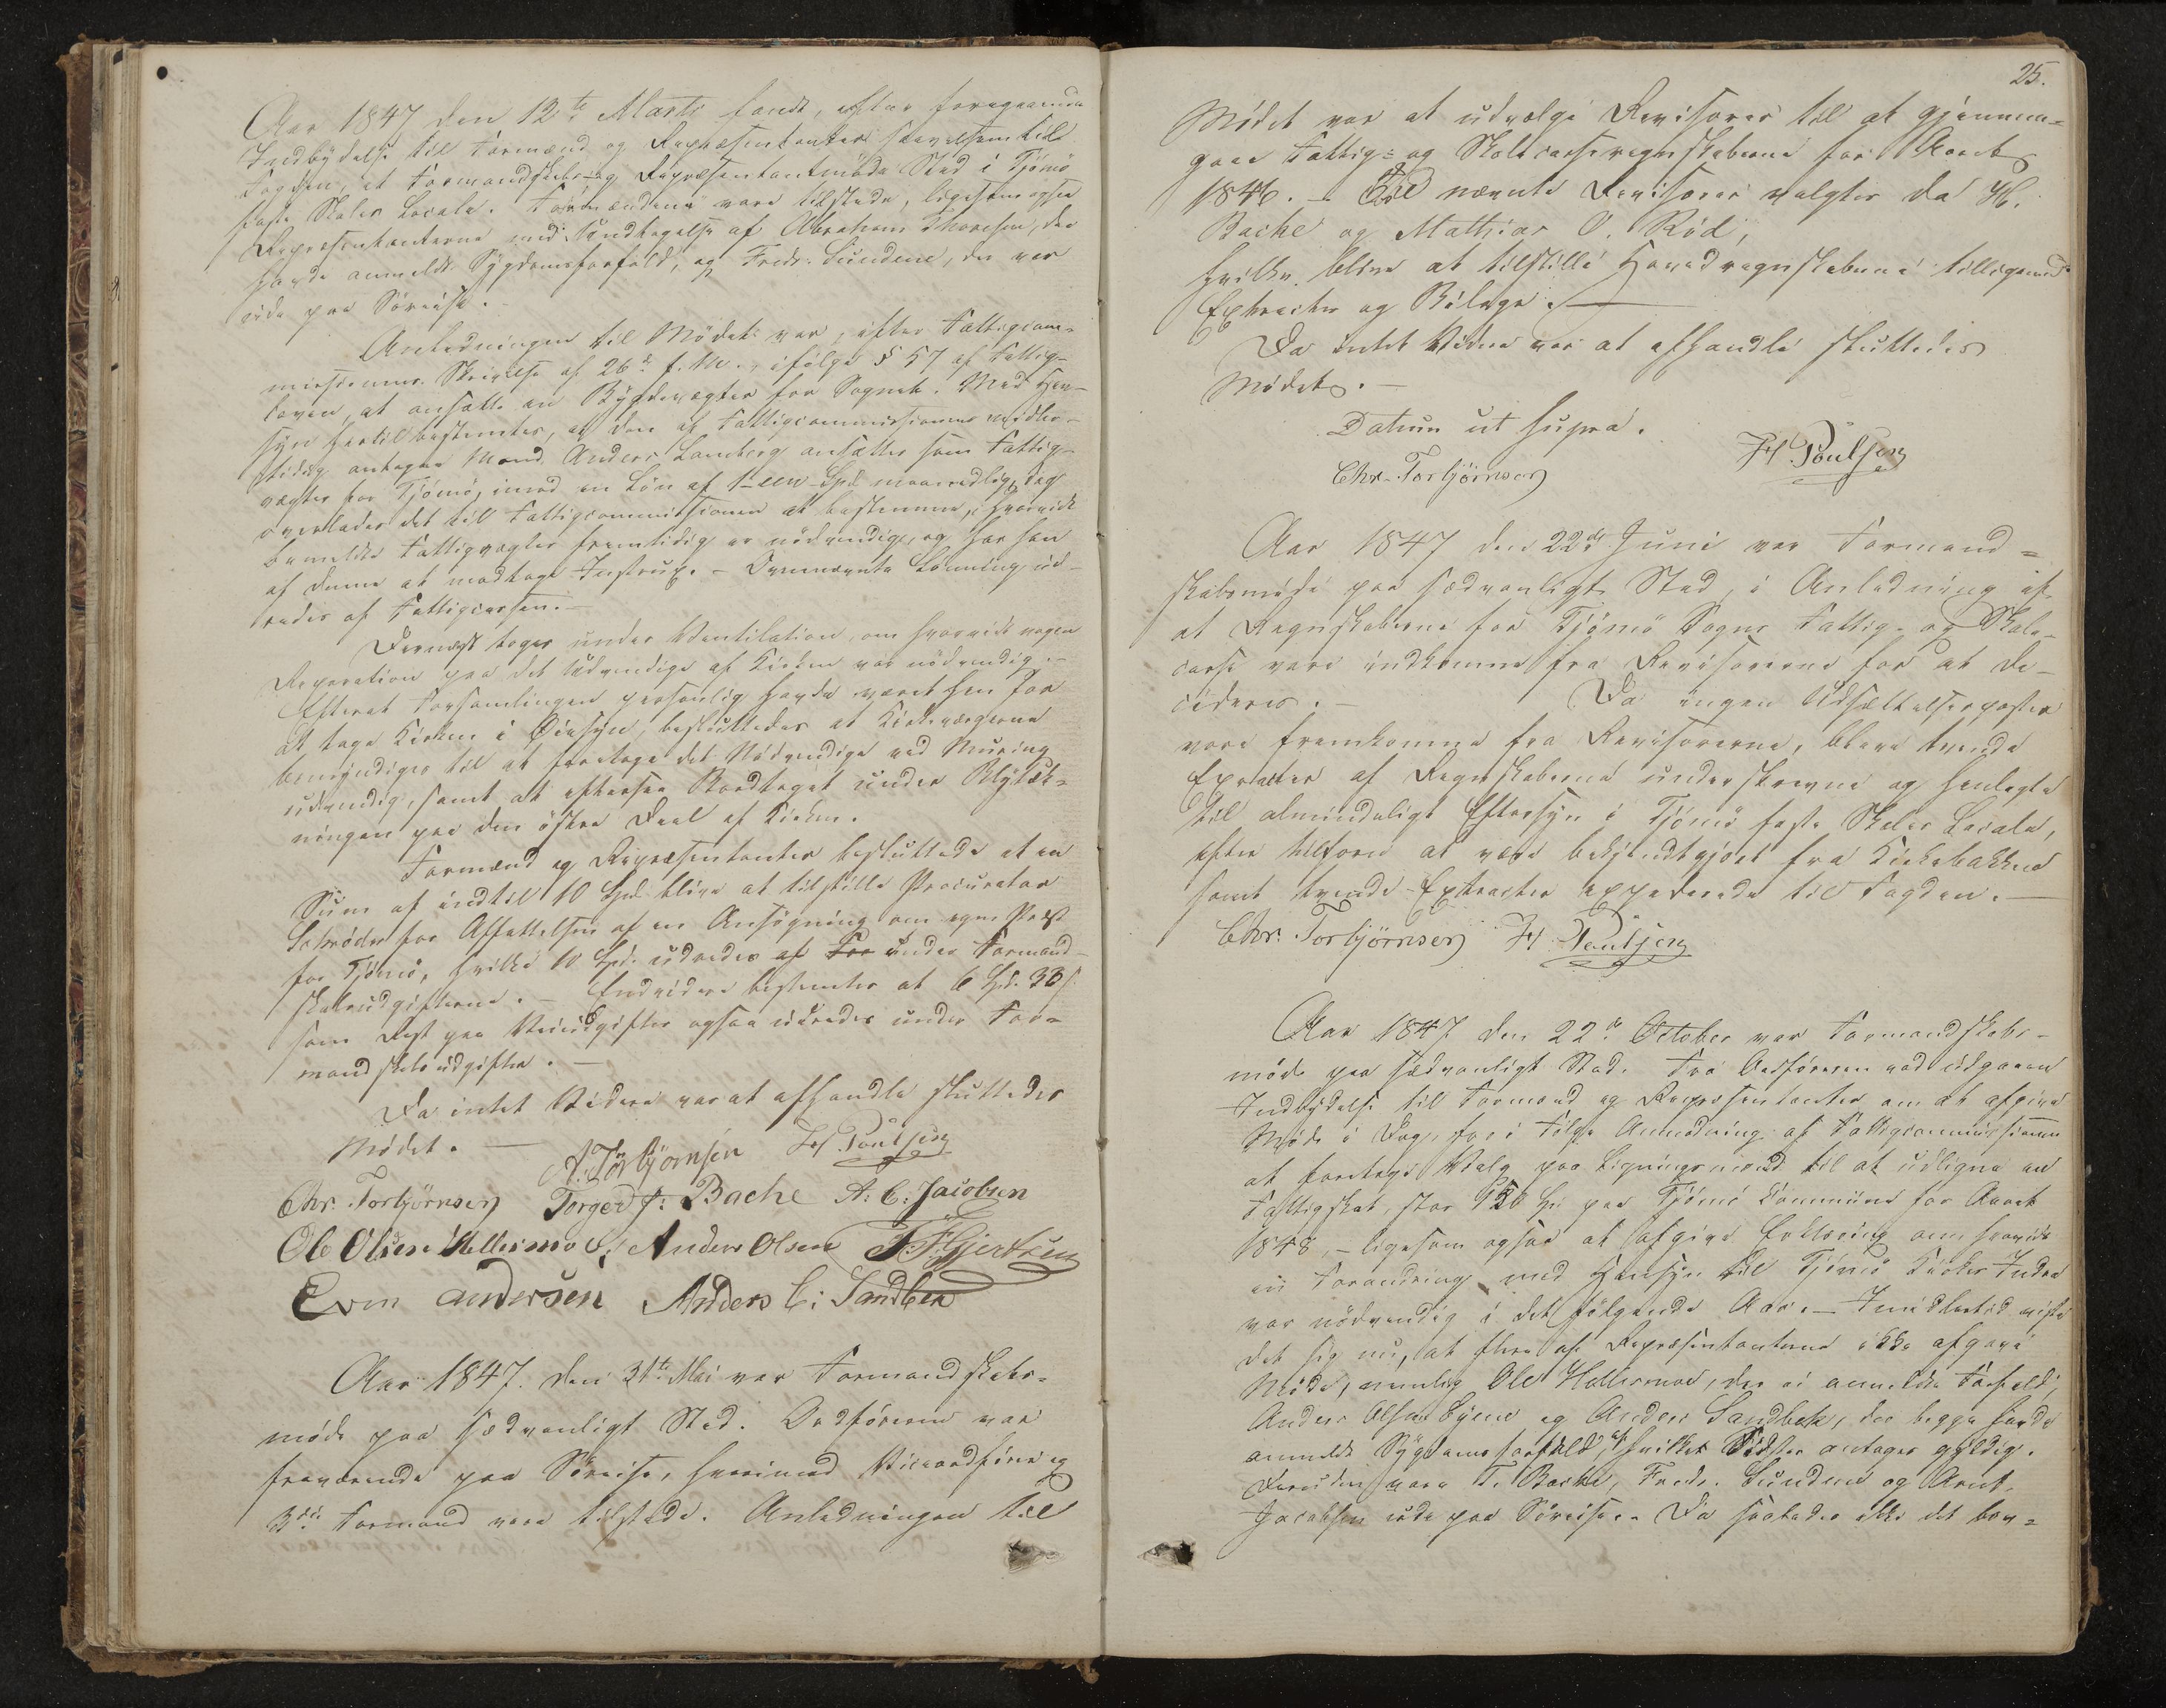 Aar 1847 den 12te Marts fandt, efter foregaaende
Indbydelse til Formænd og Repræsentanter skrivelsen til
Fogden, et Formandskabs- og Repræsentantmøde Sted i Tjømø
faste Skoles Locale. Formændene vare tilstede, ligesom ogsaa
Repræsentanterne med Undtagelse af Abraham Thoresen, der
havde anmeldt Sygdomsforfald, og Fredr. Sundene, der var
ude paa Söreise.
Anledningen til Mödet var, efter Fattigcom-
missionens Skrivelse af 26de f. M. ifölge § 57 af Fattig-
loven, at ansætte en Bygdevægter for Sognet. Med Hen-
syn hertil bestemtes, at den af Fattigcommissionen midler-
tidig antagne Mand Anders Lamberg ansættes som Fattig-
vægter for Tjömö, imod en Lön af 1-een Spd. maanedlig, dog
overlades det til Fattigcommissionen at bestemme, hvorvidt
bemeldte Fattigvægter fremtidig er nödvendig, og har han
af denne at modtage Instrux. - Ovennævnte Lönning ud-
redes af Fattigcassen. -
Dernæst toges under Ventilation om hvorvidt nogen
Reparation paa det Udvendige af Kirken var nödvendig. -
Efterat Forsamlingen personlig havde været hen for
at tage Kirken i Öiesyn, besluttedes at Kirkeværgerne
bemyndiges til at foretage det Nödvendige ved Muring
udvendig, samt at eftersee Bordtaget under Blytæk-
ningen paa den östre Deel af Kirken.
Formænd og Repræsentanter besluttede at en
Sum af indtil 10 Spd. blive at tilstille Procurator
Schröder for Affattelsen af en Ansögning om egen Præst
for Tjömö, hvilke 10 Spd. udredes af For under Formand-
skabsudgifterne. - Endvidere bestemtes at 6 Spd. 33 s
som Rest paa Veiudgifter ogsaa udredes under For-
mandskabsudgifter. -
Da intet Videre var at afhandle sluttedes
Mödet. -
A. Torbjörnsen H. Poulsen
Chr. Torbjørnsen Torger J: Bache A: C: Jacobsen
Ole Olsen Hellesmo Anders Olsen J. F. Gjertsen
Even andersen Anders C: Sandbek
Aar 1847. den 31te Mai var Formandskabs-
möde paa sædvanligt Sted. Ordföreren var
fraværende paa Söreise, hvorimod Viceordförer og
3die Formand vare tilstede. Anledningen til
25.
Mödet var at udvælge Revisorer til at gjennem-
gaae Fattig- og Skolecasseregnskaberne for Aaret
1846. - Til nævnte Revisorer valgtes da H.
Bache og Mathias O. Röd,
hvilke blive at tilstille Hovedregnskaberne tilligemed
Extracter og Bilage. -
Da intet Videre var at afhandle sluttedes
Mödet. -
Datum ut supra.
Chr. Torbjørnsen H. Poulsen
Aar 1847 den 22de Juni var Formand-
skabsmöde paa sædvanligt Sted, i Anledning af
at Regnskaberne for Tjömö Sogns Fattig- og Skole-
casse vare indkomne fra Revisorerne for at de-
cideres. - Da ingen Udsættelsesposter
vare fremkomne fra Revisorerne, bleve tvende
Extracter af Regnskaberne underskrevne og henlagte
til almindeligt Eftersyn i Tjömö faste Skoles Locale,
efter tilforn at være bekjendtgjort fra Kirkebakken
samt tvende Extracter expederede til Fogden. -
Chr. Torbjørnsen H. Poulsen
Aar 1847 den 22de October var Formandskabs-
möde paa sædvanligt Sted. Fra Ordföreren var udgaaen
Indbydelse til Formænd og Repræsentanter om at afgive
Möde i Dag, for i Fölge Anmodning af Fattigcommissionen
at foretage Valg paa Ligningsmænd til at udligne en
Fattigskat, stor 150 Spd paa Tjömö Commune for Aaret
1848, - ligesom ogsaa at afgive Erklæring om hvorvidt
en Forandring med Hensyn til Tjömö Kirkes Indre
var nödvendig i det fölgende Aar. - Imidlertid viste
det sig nu, at flere af Repræsentanterne ikke afgave
Möde, nemlig Ole Hellesmoe, der ei anmeldte Forfald,
Anders Olsen og Anders Sandbek, der begge havde
anmeldt Sygdomsforfald, hvilket antages gyldig.
Desuden vare T. Bache, Fredr. Sundene og Arnt
Jacobsen ude paa Söreise. - Da saaledes ikke det lov-